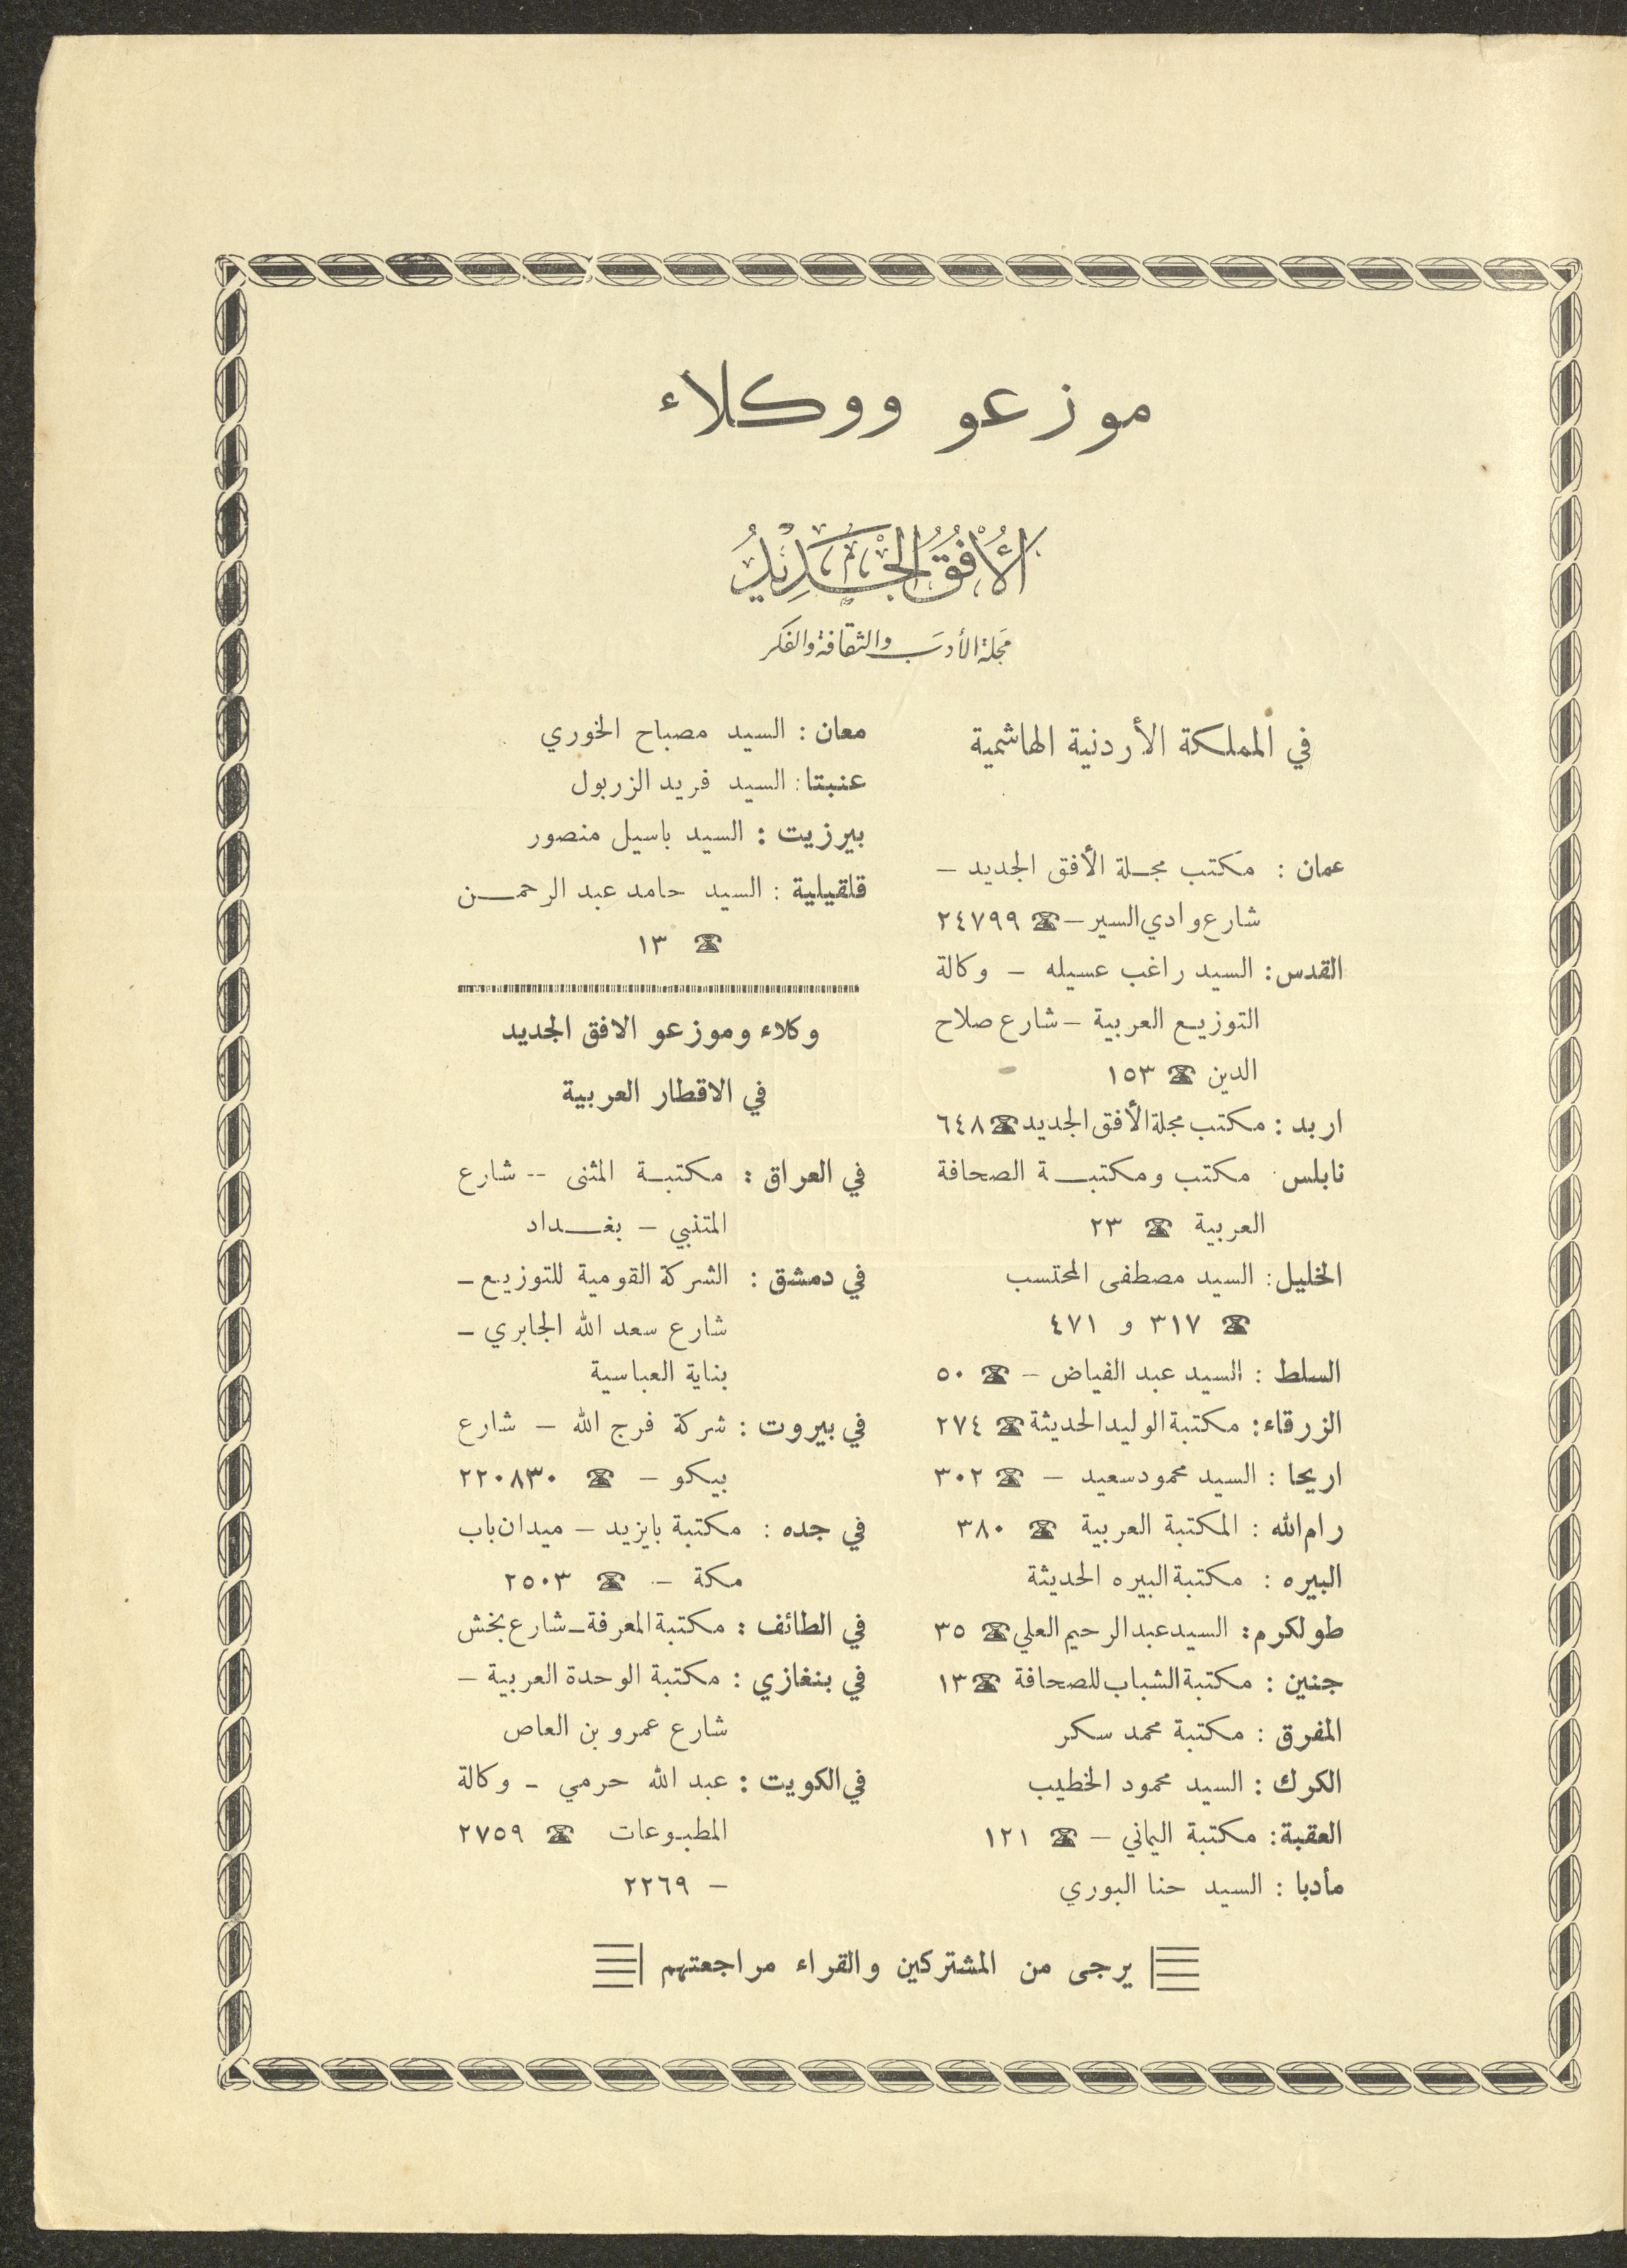 موزعو ووكلاء
الأُفُقُ الجَدِيدُ
مجلة الأدب والثقافة والفكر
في المملكة الأردنية الهاشمية
عمان : مكتب مجلة الأفق الجديد –
شارع وادي السير – ☎ ٢٤٧٩٩
القدس : السيد راغب عسيله – وكالة
التوزيع العربية – شارع صلاح
الدين ☎ ١٥٣
اربد : مكتب مجلة الأفق الجديد ☎ ٦٤٨
نابلس . مكتب ومكتبة الصحافة
العربية ☎ ٢٣
الخليل : السيد مصطفى المحتسب
☎ ٣١٧ و ٤٧١
السلط : السيد عبد الفياض – ☎ ٥٠
الزرقاء : مكتبة الوليد الحديثة ☎ ٢٧٤
اريحا : السيد محمود سعيد – ☎ ٣٠٢
رام الله : المكتبة العربية ☎ ٣٨٠
البيره : مكتبة البيره الحديثة
طولكرم : السيد عبد الرحيم العلي ☎ ٣٥
جنين : مكتبة الشباب للصحافة ☎ ١٣
المفرق : مكتبة محمد سكر
الكرك : السيد محمود الخطيب
العقبة : مكتبة اليماني – ☎ ١٢١
مأدبا : السيد حنا البوري
معان : السيد مصباح الخوري
عنبتا : السيد فريد الزربول
بيرزيت : السيد باسيل منصور
قلقيلية : السيد حامد عبد الرحمن
☎ ١٣
وكلاء وموزعو الافق الجديد
في الاقطار العربية
في العراق : مكتبة المثنى -- شارع
المتنبي – بغداد
في دمشق : الشركة القومية للتوزيع –
شارع سعد الله الجابري –
بناية العباسية
في بيروت : شركة فرج الله – شارع
بيكو – ☎ ٢٢٠٨٣٠
في جده : مكتبة بايزيد – ميدان باب
مكة – ☎ ٢٥٠٣
في الطائف : مكتبة المعرفة – شارع بخش
في بنغازي : مكتبة الوحدة العربية –
شارع عمرو بن العاص
في الكويت : عبد الله حرمي – وكالة
المطبوعات ☎ ٢٧٥٩
– ٢٢٦٩
يرجى من المشتركين والقراء مراجعتهم